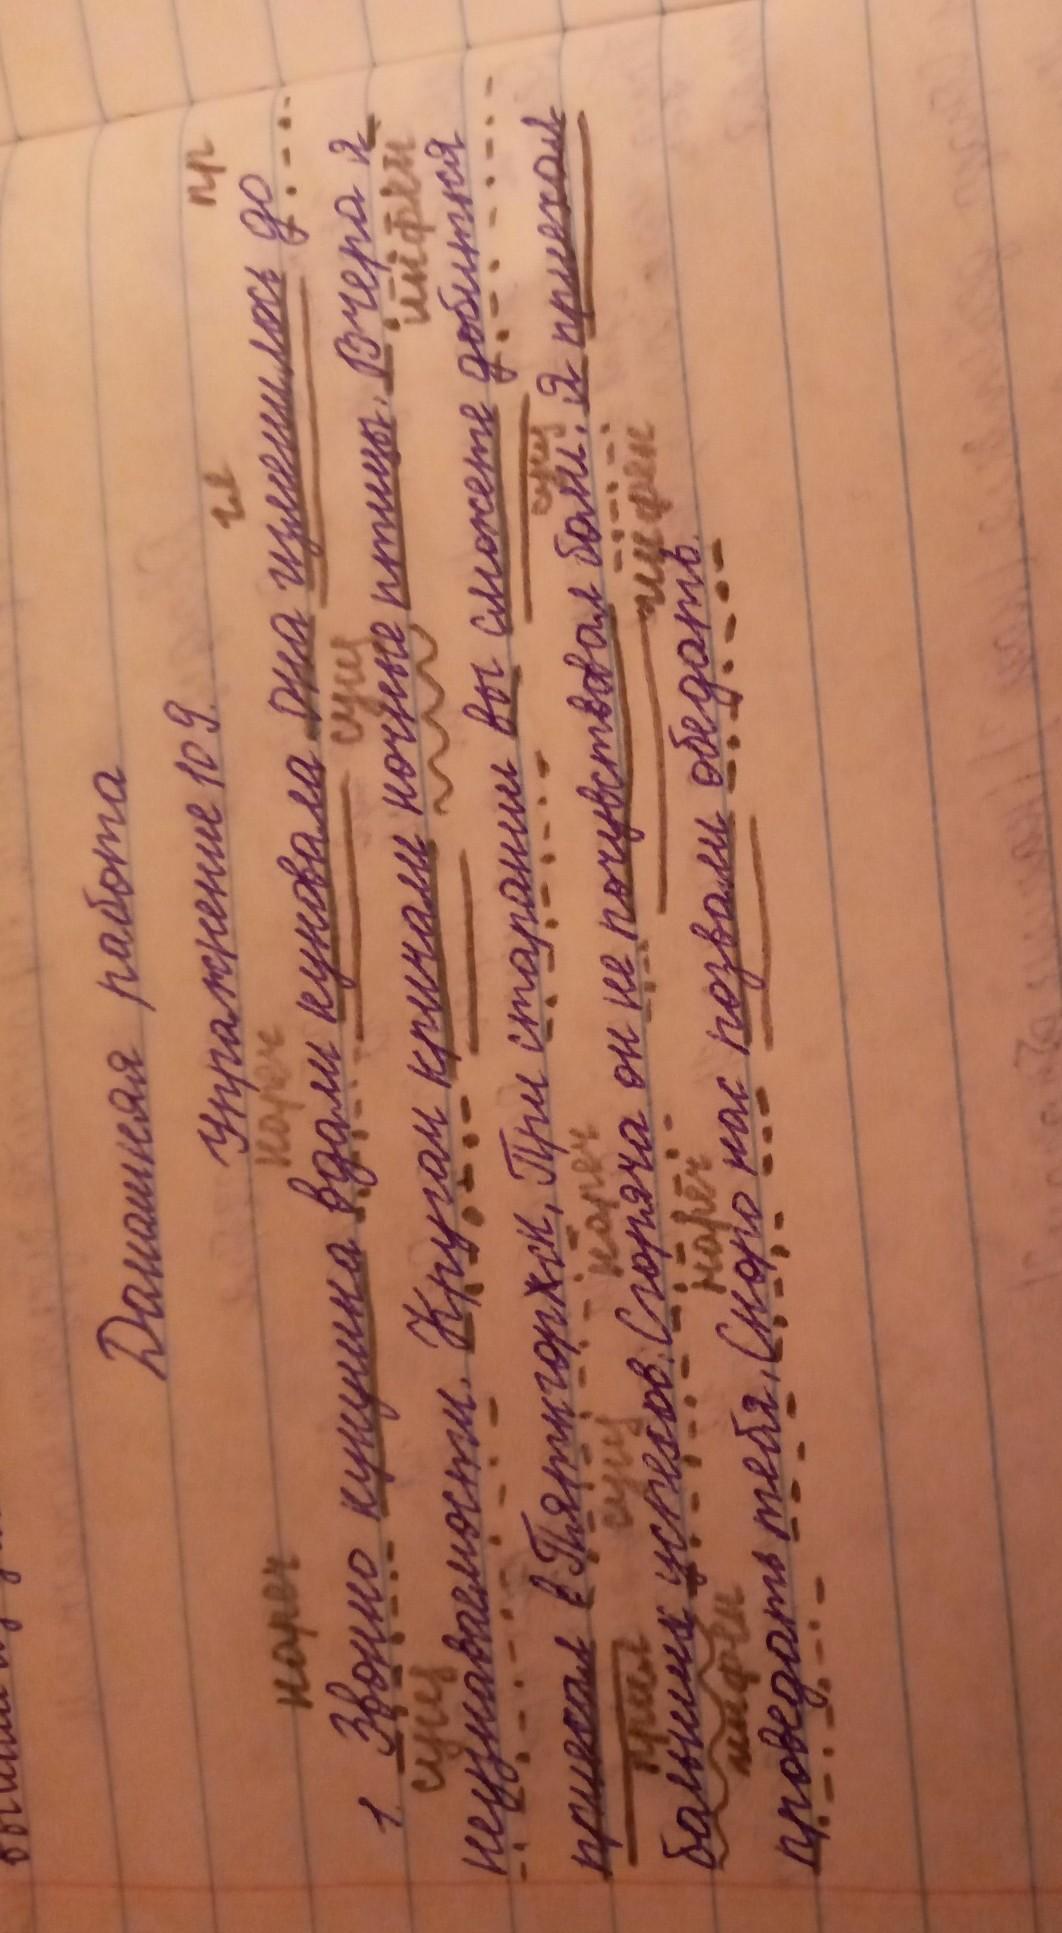 Домашняя работа
Упражнение 109.
нареч нареч гл пр
1. Звонко кукушка вдали куковала Она изменилась до
сущ сущ
неузнаваемости. Кругом кричали ночные птицы. Вчера я
инфин
приехал в Пятигорск. При старании вы сможете добиться
прил сущ нареч сущ
больших успехов. Сгоряча он не почувствовал боли. Я приехал
инфин нареч инфин
проведать тебя. Скоро нас позвали обедать.